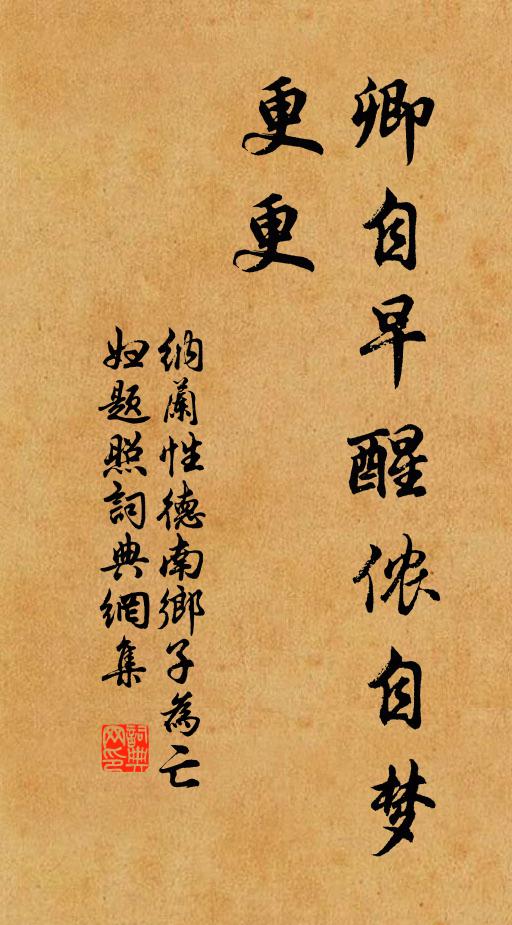 卿自早醒侬自梦
更更
纳蘭性德南鄉子為亡
妇題照詞典網集
詞典
网印